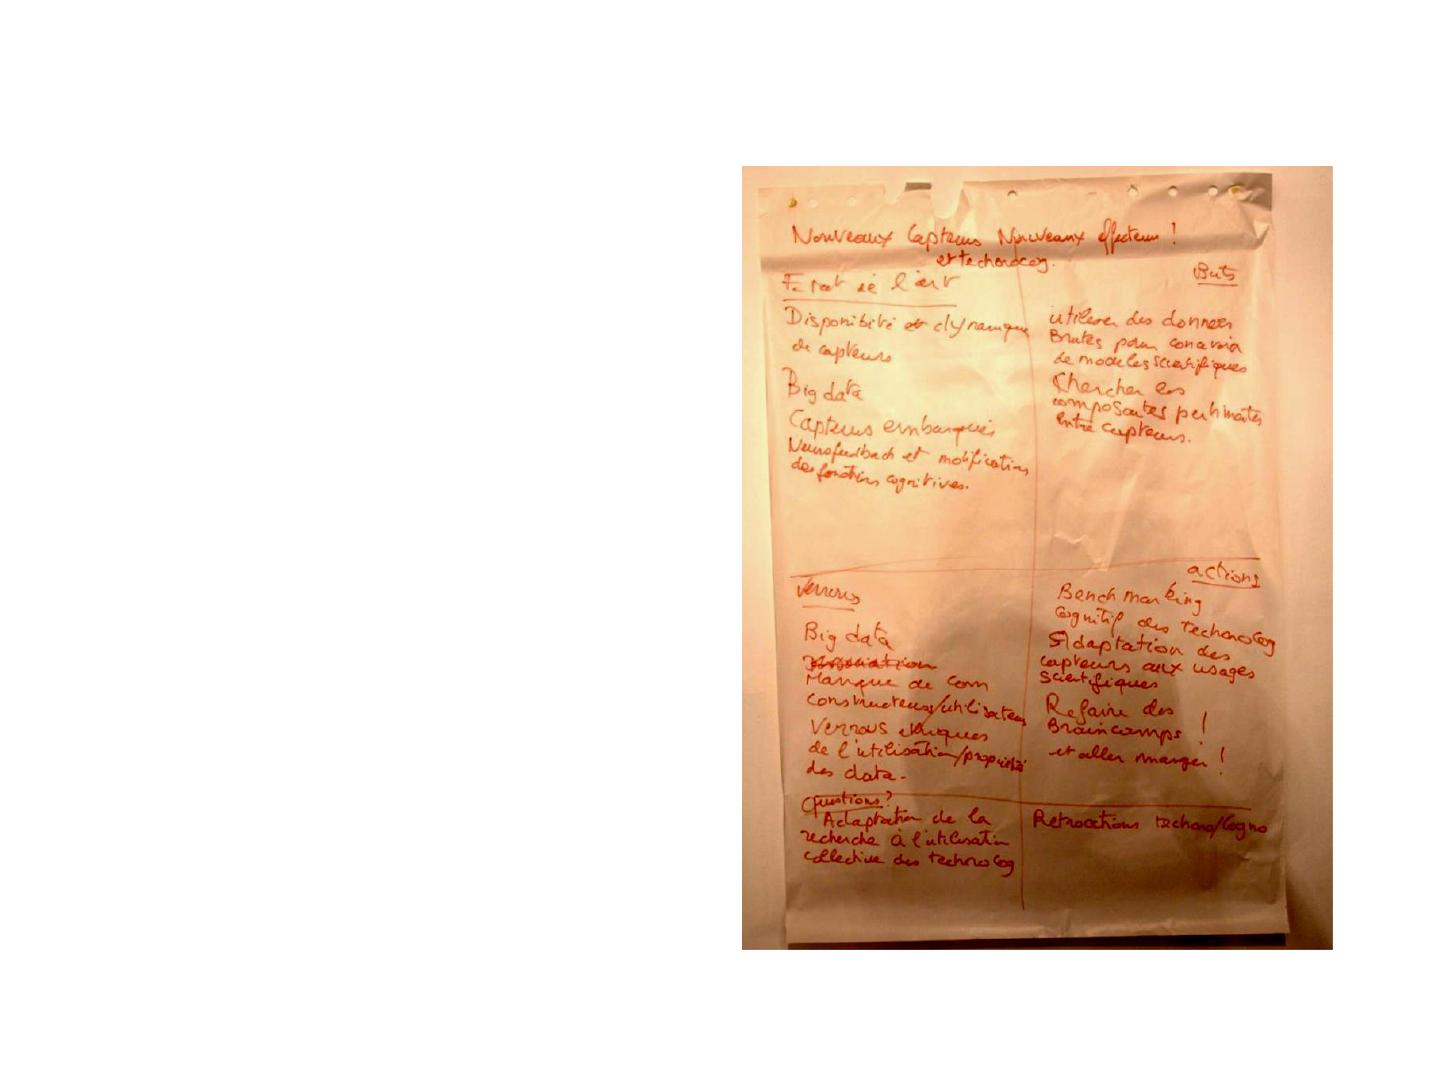 Nouveaux Capteurs Nouveaux effecteurs !
et technocog.
Etat de l'art
Disponibité et dynamique
de capteurs
Big data
Capteurs embarqués
Neurofeedback et modification
des fonctions cognitives.
Buts
utiliser des données
Brutes pour concevoir
de modeles scientifiques
Chercher les
composantes pertinentes
entre capteurs.
Verrous
Big data
Manque de com
constructeurs/utilisateurs
Verrous ethiques
de l'utilisation/propriété
des data.
actions
Benchmarking
cognitif des technocog
Adaptation des
capteurs aux usages
scientifiques
Refaire des
Braincamps !
et aller manger !
Questions ?
Adaptation de la
recherche à l'utilisation
collective des technocog
Retroactions techno/Cogno